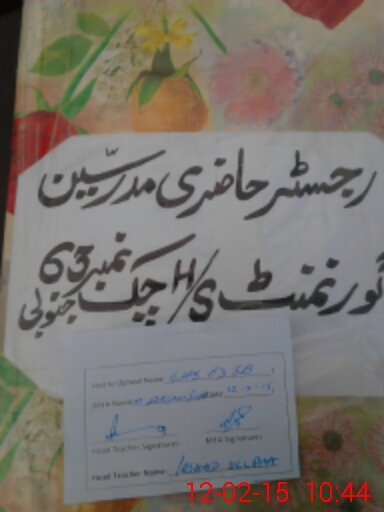 رجسٹر حاضری مدرسین
گورنمنٹ H/S چک نمبر 63 جنوبی
School Name GHS 63 SB
MEA Name Date 12-2-15
Head Teacher Signatures MEA Signatures
Head Teacher Name
12-02-15 10:44